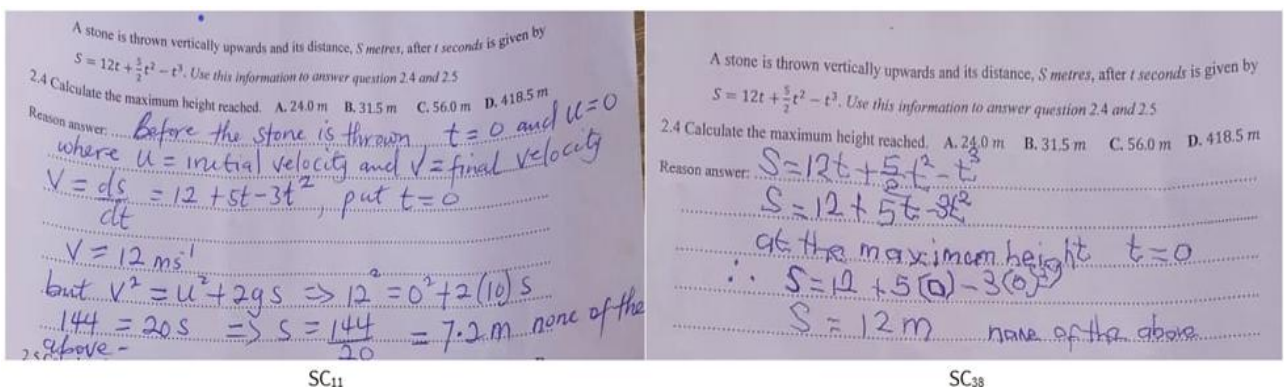 A stone is thrown vertically upwards and its distance, S metres, after t seconds is given by
S = 12t + 5/2 t² − t³. Use this information to answer question 2.4 and 2.5
2.4 Calculate the maximum height reached. A. 24.0 m B. 31.5 m C. 56.0 m D. 418.5 m
Reason answer: Before the stone is thrown, t = 0 and u=0
where u = initial velocity and V = final velocity
V = ds/dt = 12 + 5t - 3t², put t=0
V = 12 ms⁻¹
but V² = u² + 2gs => 12² = 0² + 2(10) s
144 = 20s => s = 144/20 = 7.2m none of the
above-
SC₁₁
A stone is thrown vertically upwards and its distance, S metres, after t seconds is given by
S = 12t + 5/2 t² − t³. Use this information to answer question 2.4 and 2.5
2.4 Calculate the maximum height reached. A. 24.0 m B. 31.5 m C. 56.0 m D. 418.5 m
Reason answer: S = 12t + 5/2 t² - t³
S = 12 + 5t - 3t²
at the maximum height t=0
∴ S = 12 + 5(0) - 3(0)²
S = 12m none of the above
SC₃₈